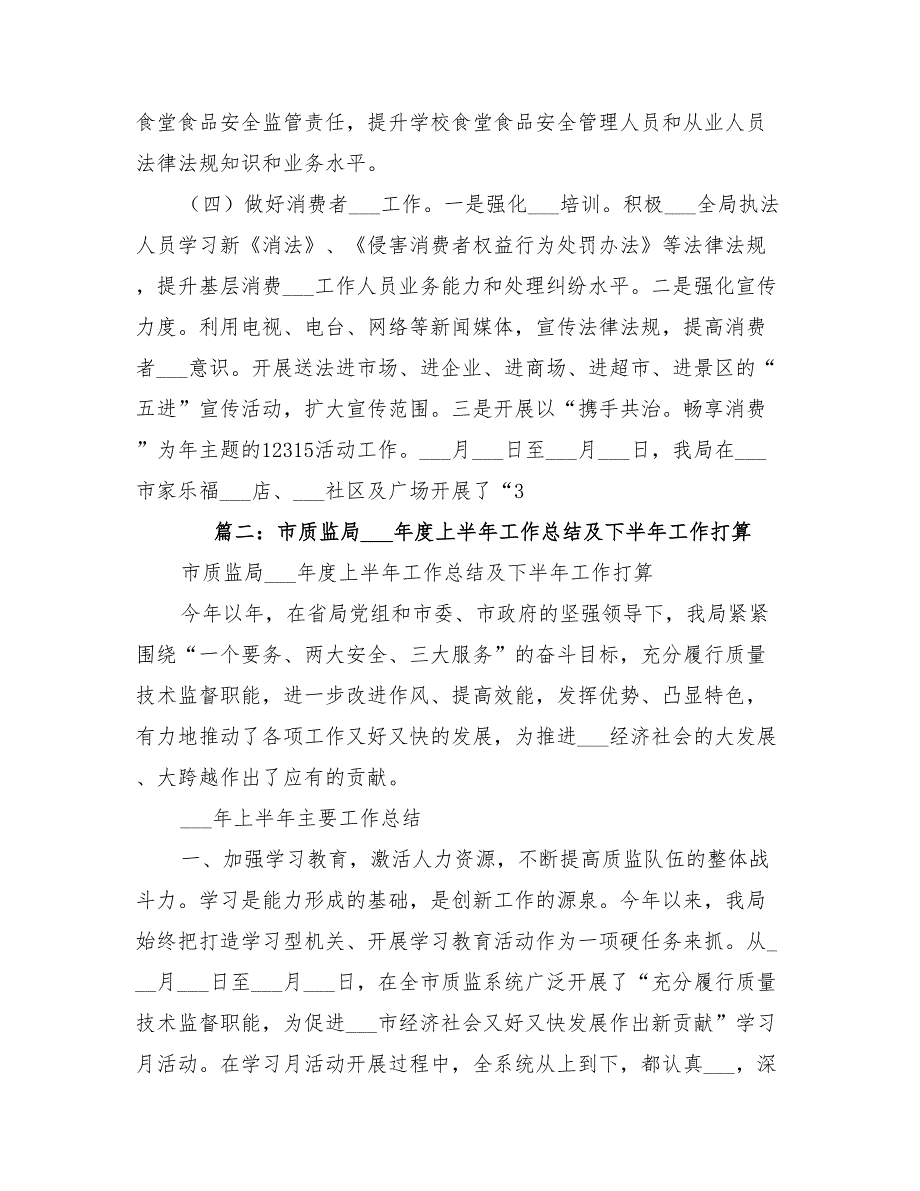 食堂食品安全监管责任，提升学校食堂食品安全管理人员和从业人员
法律法规知识和业务水平。
（四）做好消费者___工作。一是强化___培训。积极___全局执法
人员学习新《消法》、《侵害消费者权益行为处罚办法》等法律法规
，提升基层消费___工作人员业务能力和处理纠纷水平。二是强化宣传
力度。利用电视、电台、网络等新闻媒体，宣传法律法规，提高消费
者___意识。开展送法进市场、进企业、进商场、进超市、进景区的“
五进”宣传活动，扩大宣传范围。三是开展以“携手共治。畅享消费
”为年主题的12315活动工作。___月___日至___月___日，我局在___
市家乐福___店、___社区及广场开展了“3
篇二：市质监局___年度上半年工作总结及下半年工作打算
市质监局___年度上半年工作总结及下半年工作打算
今年以年，在省局党组和市委、市政府的坚强领导下，我局紧紧
围绕“一个要务、两大安全、三大服务”的奋斗目标，充分履行质量
技术监督职能，进一步改进作风、提高效能，发挥优势、凸显特色，
有力地推动了各项工作又好又快的发展，为推进___经济社会的大发展
、大跨越作出了应有的贡献。
___年上半年主要工作总结
一、加强学习教育，激活人力资源，不断提高质监队伍的整体战
斗力。学习是能力形成的基础，是创新工作的源泉。今年以来，我局
始终把打造学习型机关、开展学习教育活动作为一项硬任务来抓。从_
__月___日至___月___日，在全市质监系统广泛开展了“充分履行质量
技术监督职能，为促进___市经济社会又好又快发展作出新贡献”学习
月活动。在学习月活动开展过程中，全系统从上到下，都认真___，深